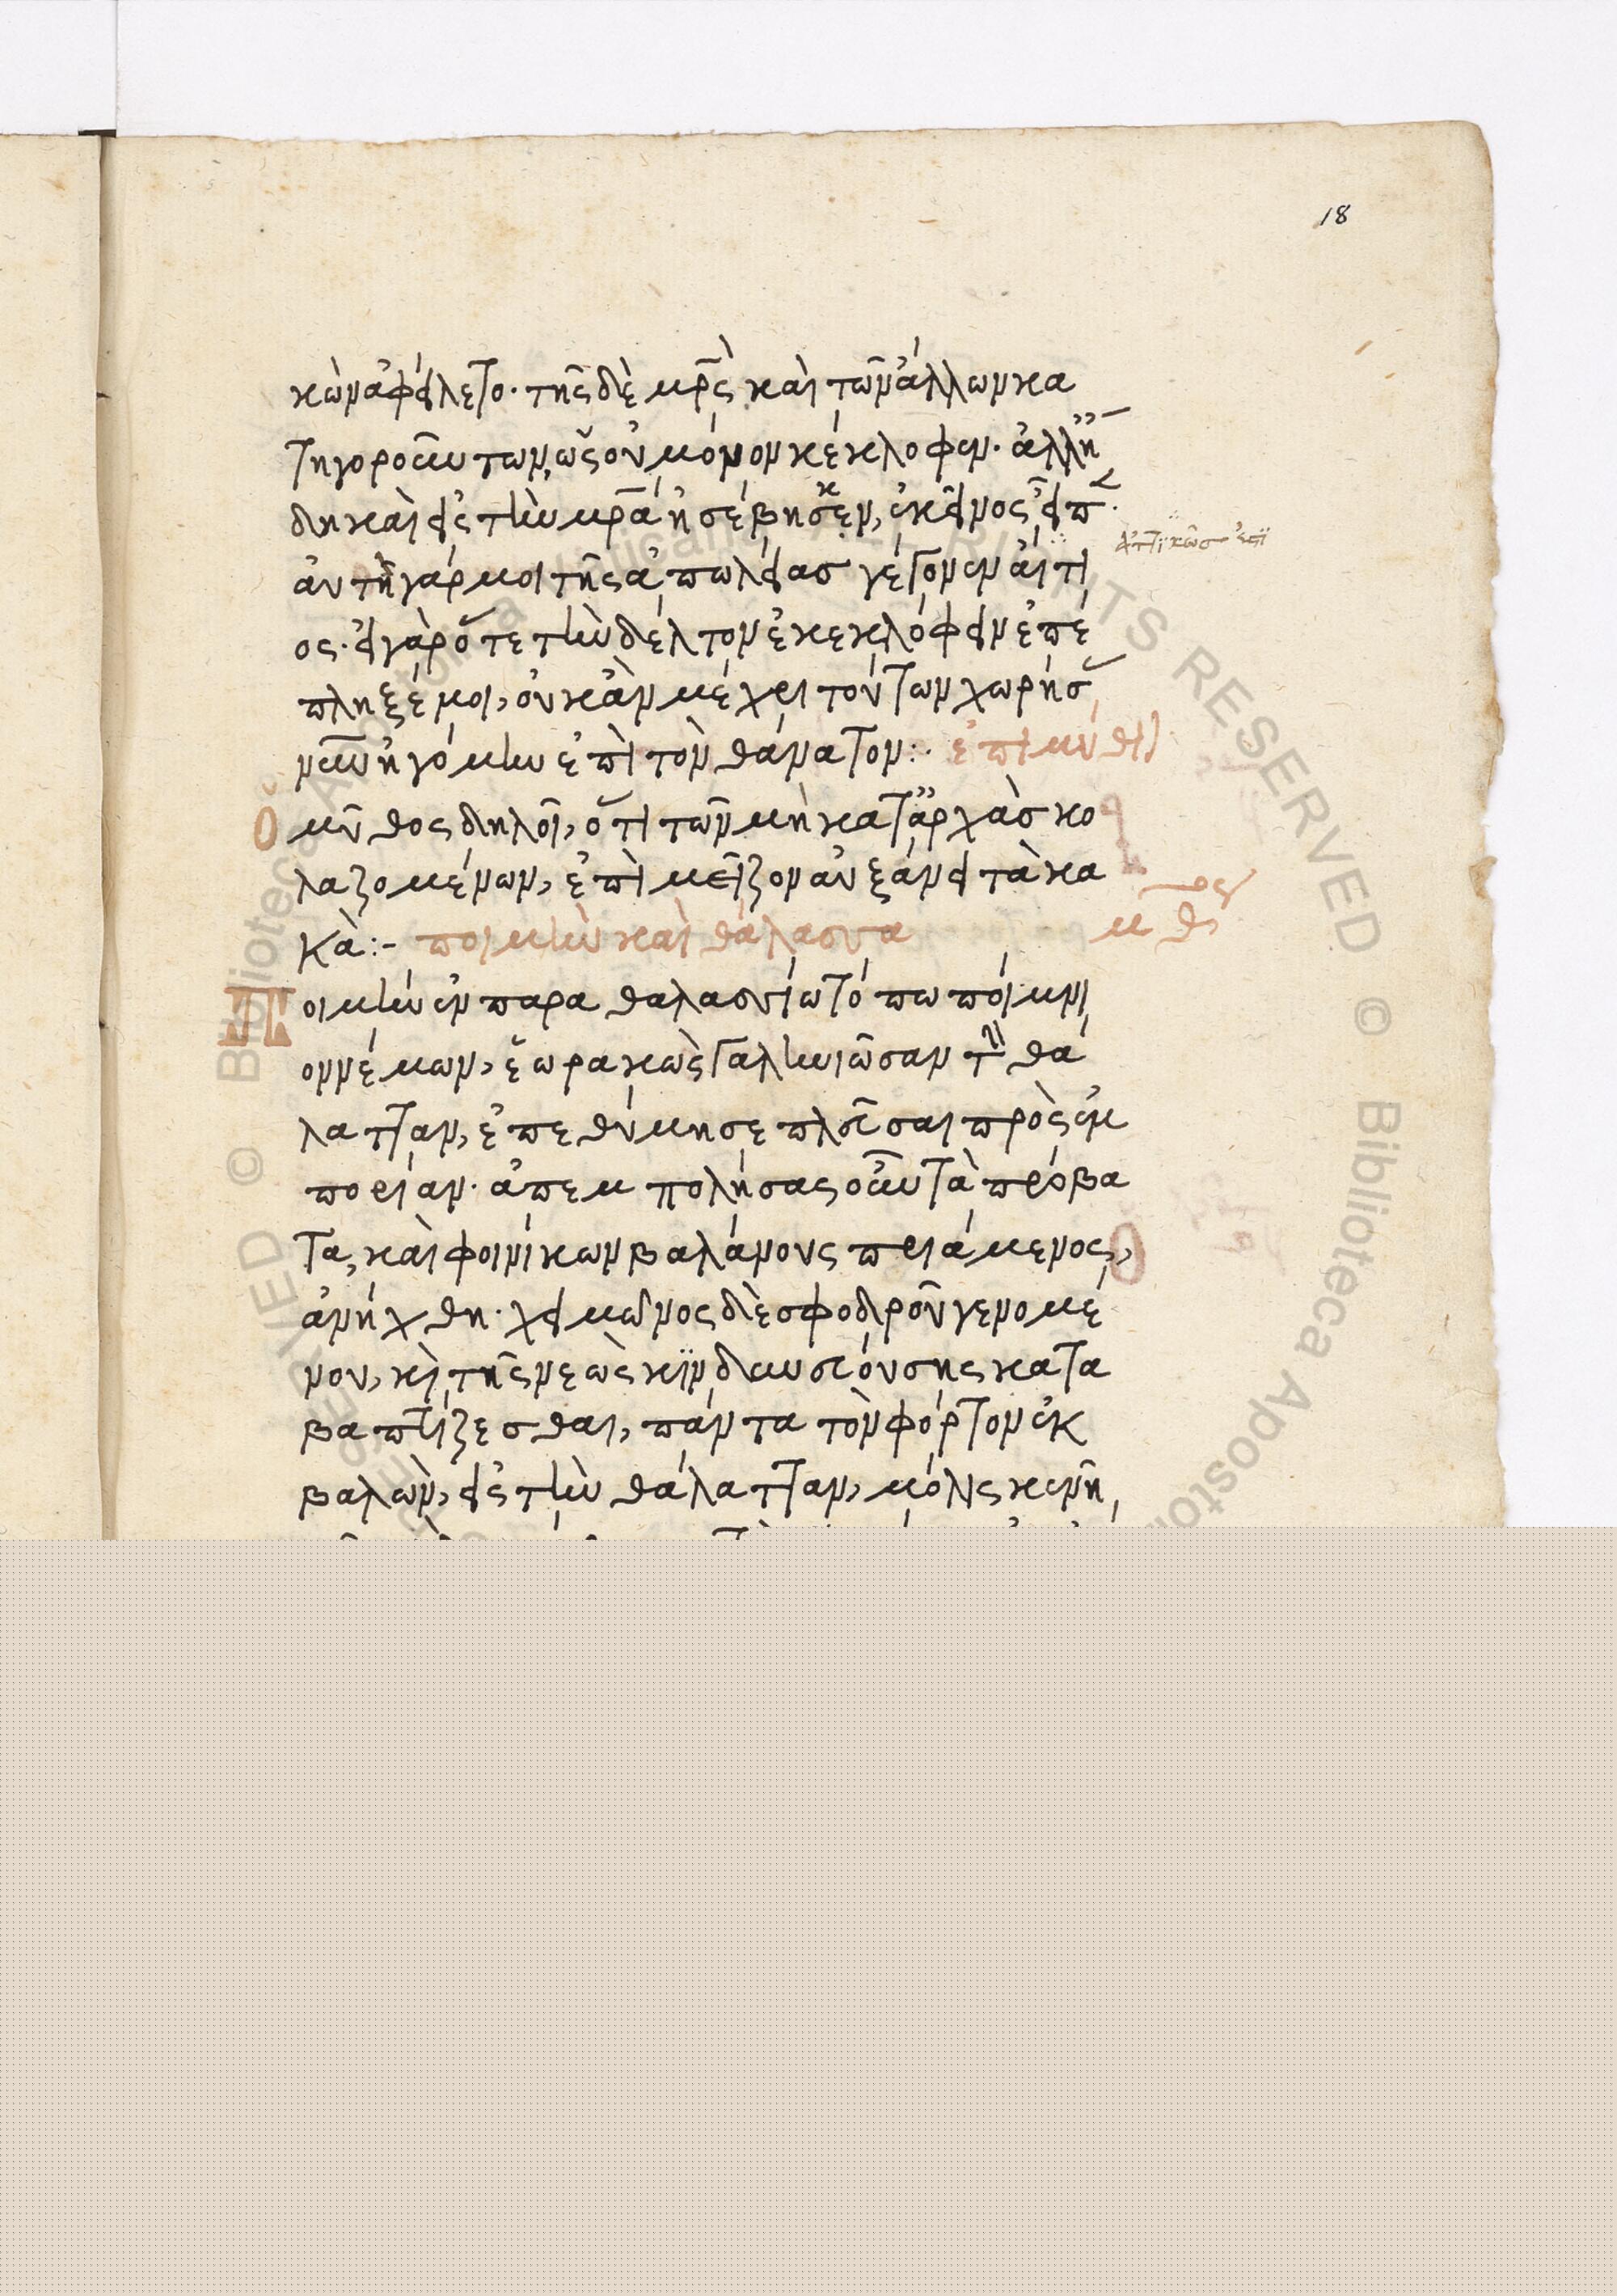 18
κὼν ἀφείλετο· τῆς δὲ μρ̅ς καὶ τῶν ἄλλων κα
τηγορούντων, ὡς οὐ μόνον κέκλοφεν· ἀλλ' ἤ
δη καὶ εἰς τὴν μρ̅α ἠσέβησεν, ἐκεῖνος εἶπ·
αὐτὴ γάρ μοι τῆς ἀπωλείας γέγονεν αἴτι
ος· εἰ γὰρ ὅτε τὴν δέλτον ἐκεκλόφειν ἐπέ
πληξέ μοι, οὐκ ἂν μέχρι τούτων χωρήσ
νῦν ἠγόμην ἐπὶ τὸν θάνατον:· ἐπιμύθι
Ὁ μῦθος δηλοῖ, ὅτι τῶν μὴ κατ' ἀρχὰς κο
λαζομένων, ἐπὶ μεῖζον αὐξάνει τὰ κα
κά:- ποιμὴν καὶ θάλασσα
Ποιμὴν ἐν παραθαλασσίω τόπω ποίμνι
ον νέμων, ἑωρακὼς γαληνιῶσαν τὴν θά
λατταν, ἐπεθύμησε πλεῦσαι πρὸς ἐμ
πορίαν· ἀπεμπολήσας οὖν τὰ πρόβα
τα, καὶ φοινίκων βαλάνους πριάμενος,
ἀνήχθη· χειμῶνος δὲ σφοδροῦ γενομέ
νου, κὶ τῆς νεὼς κινδυνευούσης κατα
βαπτίζεσθαι, πάντα τὸν φόρτον ἐκ
βαλὼν, εἰς τὴν θάλατταν, μόλις κενῆ